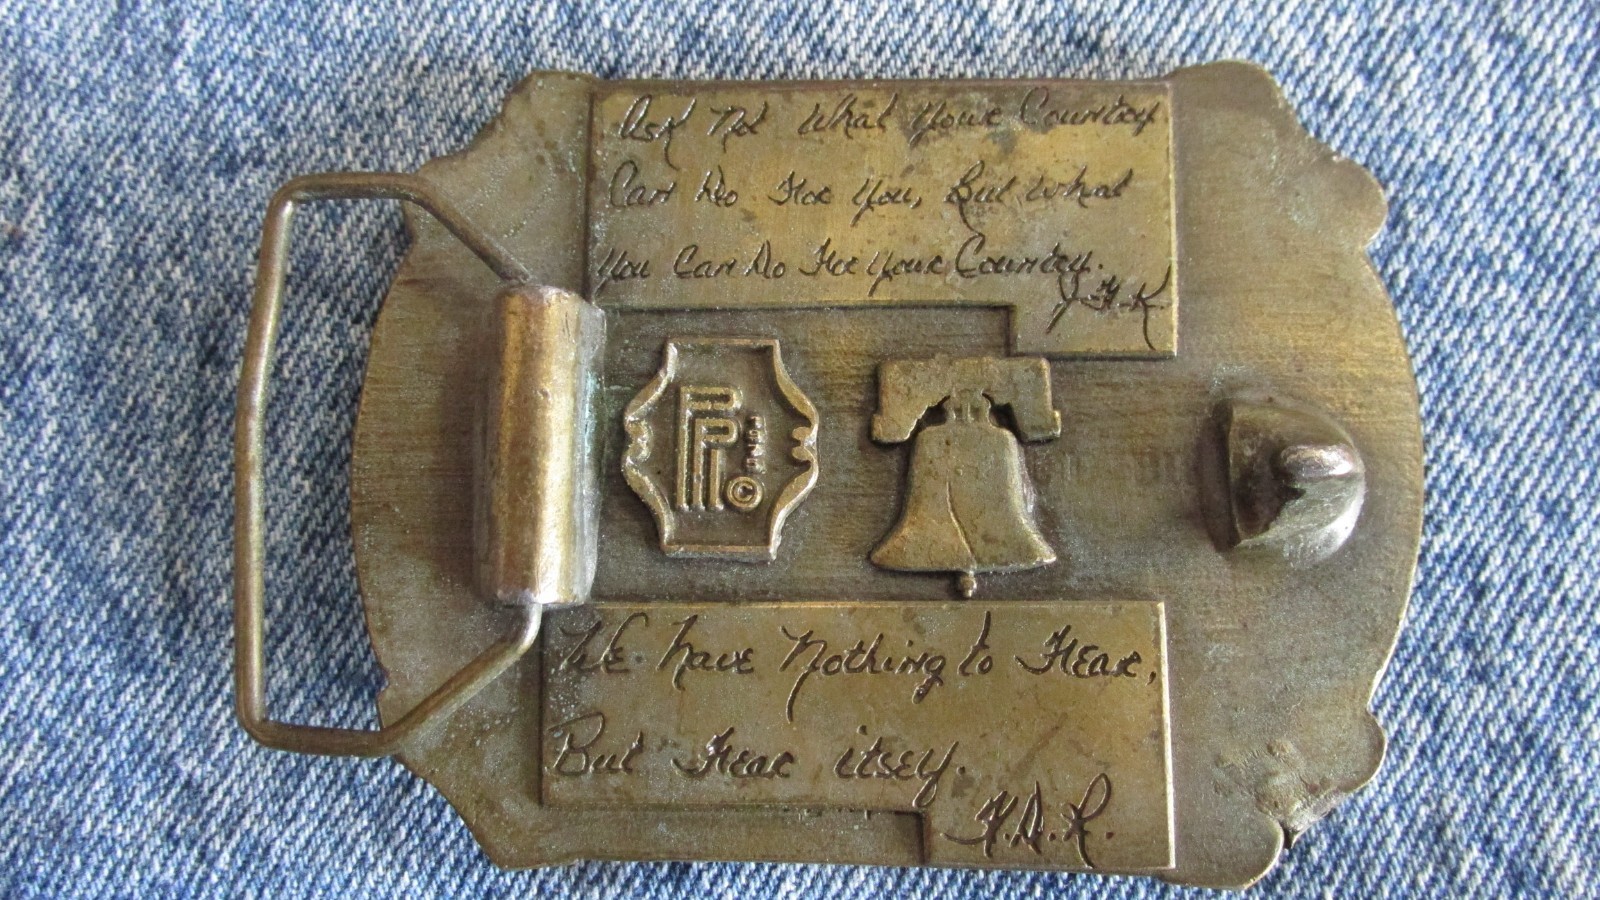 Ask Not What Your Country
Can Do For You, But What
You Can Do For Your Country.
J.F.K.
PP
©
We Have Nothing to Fear,
But Fear itself.
F.D.R.